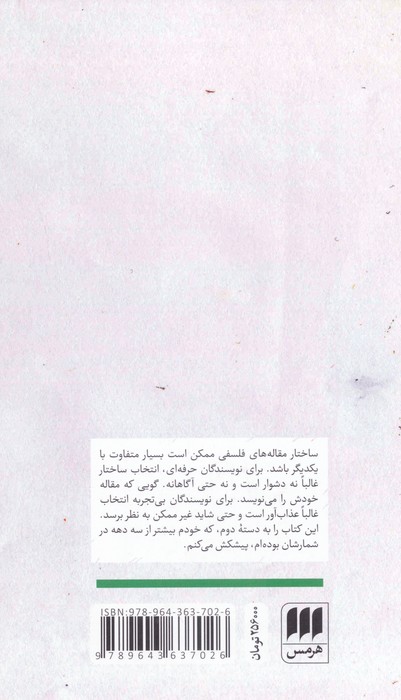 ساختار مقاله‌های فلسفی ممکن است بسیار متفاوت با
یکدیگر باشد. برای نویسندگان حرفه‌ای، انتخاب ساختار
غالباً نه دشوار است و نه حتی آگاهانه. گویی که مقاله
خودش را می‌نویسد. برای نویسندگان بی‌تجربه انتخاب
غالباً عذاب‌آور است و حتی شاید غیر ممکن به نظر برسد.
این کتاب را به دستهٔ دوم، که خودم بیشتر از سه دهه در
شمارشان بوده‌ام، پیشکش می‌کنم.
ISBN: 978-964-363-702-6
9 789643 637026
۲۵۶۰۰۰ تومان
هرمس